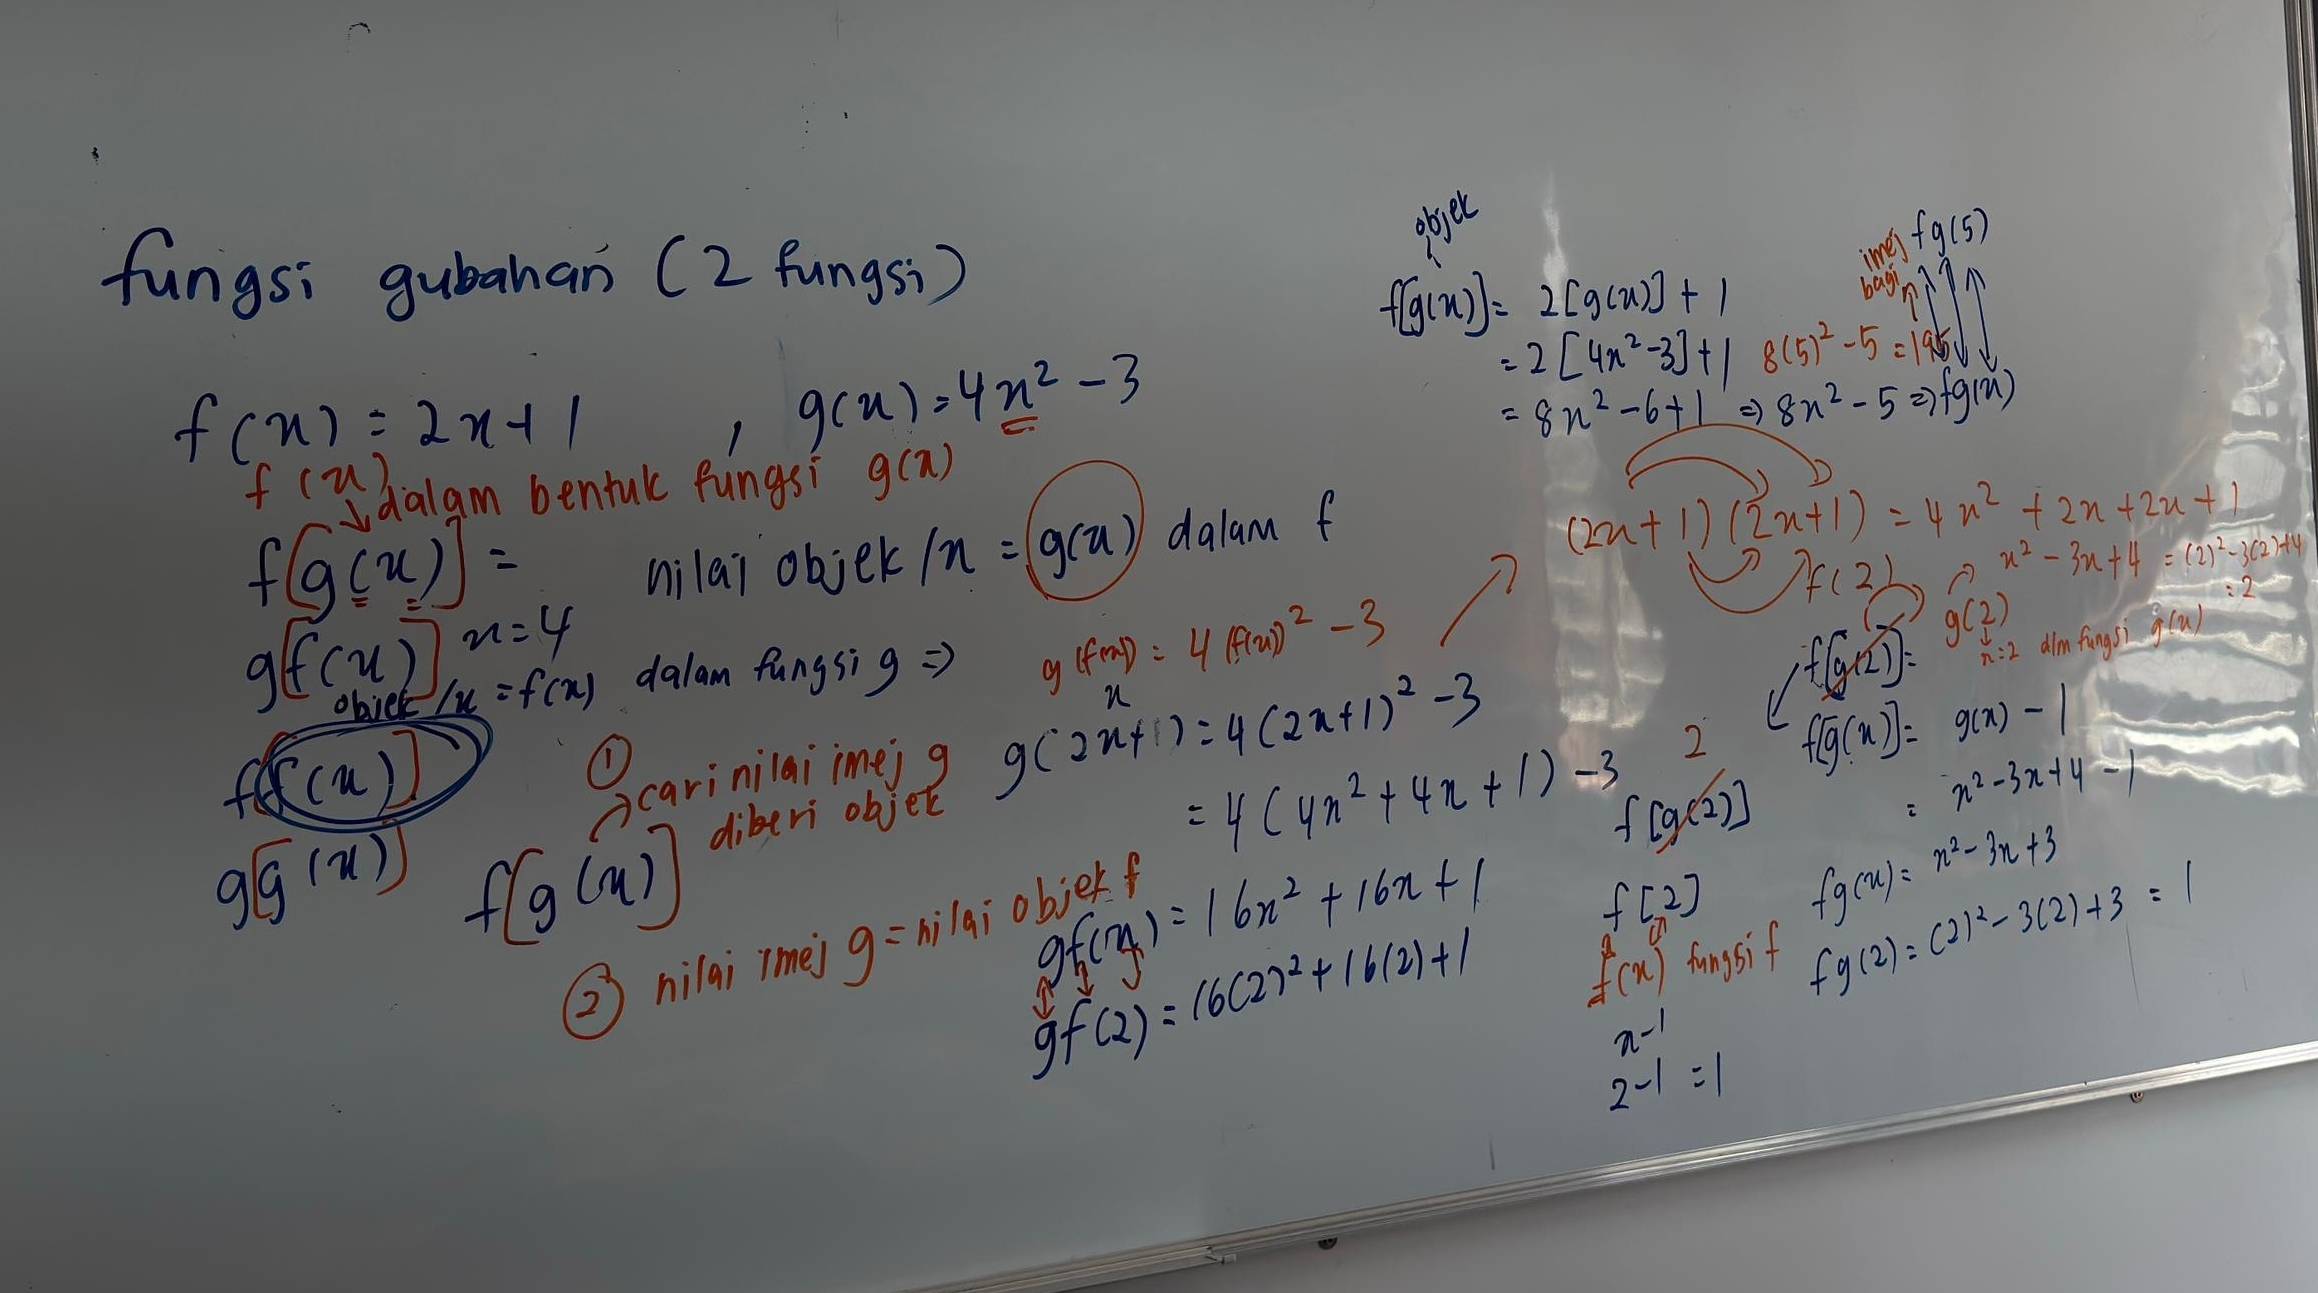 fungsi gubahan (2 fungsi)
f(x) = 2x+1 , g(x) = 4x² - 3
f(x) dalam bentuk fungsi g(x)
f[g(x)] = nilai objek/x = g(x) dalam f
x=4
g[f(x)]
objek/x = f(x) dalam fungsi g ⇒ g(f(x)) = 4(f(x))² - 3
x
g(2x+1) = 4(2x+1)² - 3
= 4(4x² + 4x + 1) - 3
gf(x) = 16x² + 16x + 1
gf(2) = 16(2)² + 16(2) + 1
f[f(x)]
g[g(x)]
f[g(x)]
① cari nilai imej g
diberi objek
② nilai imej g = nilai objek f
objek
f[g(x)] = 2[g(x)] + 1
= 2[4x²-3]+1
= 8x² - 6+1 ⇒ 8x² - 5 ⇒ fg(x)
imej fg(5)
bagi
8(5)² - 5 = 195
(2x+1)(2x+1) = 4x² + 2x + 2x + 1
f(2)
g(2)
x² - 3x + 4 = (2)² - 3(2) + 4
= 2
x=2 dlm fungsi g(x)
f[g(2)] =
f[g(x)] = g(x) - 1
= x² - 3x + 4 - 1
fg(x) = x² - 3x + 3
fg(2) = (2)² - 3(2) + 3 = 1
2
f[g(2)]
f[2]
f(x) fungsi f
x-1
2-1 = 1